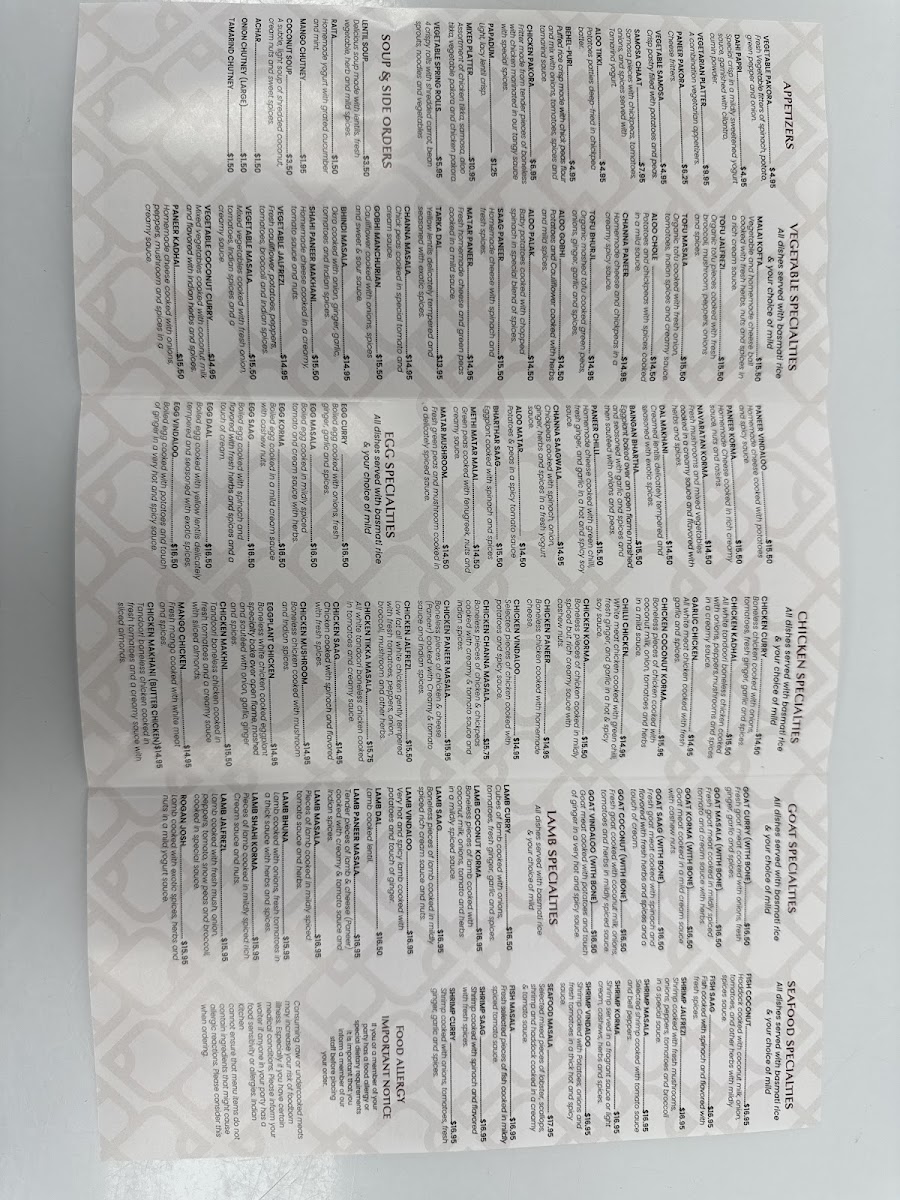 APPETIZERS
VEGETABLE PAKORA..............$4.95
Fresh Vegetable fritters of spinach, potato,
green pepper and onion.
DAHI PAPRI..............$4.95
Special crisp in a mildly sweetened yogurt
sauce, garnished with cilantro,
cumin powder.
VEGETARIAN PLATTER..............$9.95
A combination vegetarian appetizers.
PANEER PAKORA..............$6.25
Cheese fritters.
VEGETABLE SAMOSA..............$4.95
Crisp pastry filled with potatoes and peas.
SAMOSA CHAAT..............$7.95
Samosa pieces with chickpeas, tomatoes,
onions, and spices served with
Tamarind yogurt.
ALOO TIKKI..............$4.95
Potatoes patties deep-fried in chickpea
batter.
BEHL-PURI..............$4.95
Puffed rice crisp made with chick peas flour
and mix with onions, tomatoes, spices and
tamarind sauce
CHICKEN PAKORA..............$6.95
Fritter made from tender pieces of boneless
with chicken marinated in our tangy sauce
with special spices.
PAPADUM..............$1.25
Light, lacy lentil crisp.
MIXED PLATTER..............$10.95
Assortment of chicken tikka, samosa, aloo
tikka, vegetable pakora and chicken pakora.
VEGETABLE SPRING ROLLS..............$5.95
4 crispy rolls with shredded carrot, bean
sprouts, noodles and vegetables
SOUP & SIDE ORDERS
LENTIL SOUP..............$3.50
Delicious soup made with lentils, fresh
vegetable, herb and mild spices
RAITA..............$1.50
Homemade yogurt with grated cucumber
and mint.
MANGO CHUTNEY..............$1.95
COCONUT SOUP..............$3.50
A subtle, light soup of shredded coconut,
cream nuts and sweet spices.
ACHAR..............$1.50
ONION CHUTNEY (LARGE)..............$1.50
TAMARIND CHUTNEY..............$1.50
VEGETABLE SPECIALTIES
All dishes served with basmati rice
& your choice of mild
MALAI KOFTA..............$15.50
Vegetable and homemade cheese ball
cooked with fresh herbs, nuts and spices in
a rich cream sauce.
TOFU JALFREZI..............$15.50
Organic tofu pieces cooked with fresh
broccoli, mushroom, peppers, onions
TOFU MASALA..............$15.50
Organic tofu cooked with fresh onion,
tomatoes, Indian spices and creamy sauce.
ALOO CHOLE..............$14.50
Potatoes and chickpeas with spices cooked
in a mild sauce.
CHANNA PANEER..............$14.95
Homemade cheese and chickpeas in a
creamy spicy sauce.
TOFU BHURJI..............$14.95
Organic mashed tofu cooked green peas,
onions, ginger, garlic and spices.
ALOO GOBHI..............$14.50
Potatoes and Cauliflower cooked with herbs
and mild spices.
ALOO PALAK..............$14.50
Baby potatoes cooked with chopped
spinach in special blend of spices.
SAAG PANEER..............$15.50
Homemade cheese with spinach and
fresh spices.
MATTAR PANEER..............$14.95
Fresh homemade cheese and green peas
cooked in a mild sauce.
TARKA DAL..............$13.95
Yellow lentils delicately tempered and
seasoned with exotic spices.
CHANNA MASALA..............$14.95
Chick peas cooked in special tomato and
cream sauce.
GOBHI MANCHURIAN..............$15.50
Cauliflower cooked with onions, spices
and sweet & sour sauce.
BHINDI MASALA..............$14.95
Okra cooked with onion, ginger, garlic,
tomatoes and Indian spices.
SHAHI PANEER MAKHANI..............$15.50
Homemade cheese cooked in a creamy,
tomato sauce and nuts.
VEGETABLE JALFREZI..............$14.95
Fresh cauliflower, potatoes, peppers,
tomatoes, broccoli and Indian spices.
VEGETABLE MASALA..............$15.50
Mixed vegetables cooked with fresh onion,
tomatoes, Indian spices and a
creamy sauce.
VEGETABLE COCONUT CURRY..............$14.95
Mixed vegetables cooked with coconut milk
and flavored with Indian herbs and spices.
PANEER KADHAI..............$15.50
Homemade cheese cooked with onions,
peppers, mushroom and spices in a
creamy sauce.
PANEER VINDALOO..............$15.50
Homemade cheese cooked with potatoes
and spicy sauce
PANEER KORMA..............$15.50
Homemade cheese cooked in rich creamy
sauce, nuts and raisins.
NAVARATAN KORMA..............$14.50
Fresh mushrooms and mixed vegetables
cooked in a creamy sauce and flavored with
herbs and spices.
DAL MAKHANI..............$14.50
Creamed lentils delicately tempered and
seasoned with exotic spices.
BAINGAN BHARTHA..............$15.50
Eggplant baked over an open flame, mashed
and seasoned with garlic and spices and
sauteed with onions and peas.
PANEER CHILLI..............$15.50
Homemade cheese cooked with green chilli,
fresh ginger and garlic in a hot and spicy soy
sauce
CHANNA SAAGWALA..............$14.95
Chickpeas cooked with spinach, onion,
ginger, herbs and spices in a fresh yogurt
ALOO MATAR..............$14.50
Potatoes & peas in a spicy tomato sauce
BHARTHAR SAAG..............$15.50
Eggplant cooked with spinach and spices
METHI MATAR MALAI..............$14.50
Green peas cooked with fenugreek, nuts and
creamy sauce.
MATAR MUSHROOM..............$14.50
Fresh green peas and mushroom cooked in
a delicately spiced sauce.
EGG SPECIALTIES
All dishes served with basmati rice
& your choice of mild
EGG CURRY..............$16.50
Boiled egg cooked with onions, fresh
ginger, garlic and spices.
EGG MASALA..............$16.50
Boiled egg cooked in mildly spiced
tomato and cream sauce with herbs.
EGG KORMA..............$16.50
Boiled egg cooked in a mild cream sauce
with cashew nuts.
EGG SAAG..............$16.50
Boiled egg cooked with spinach and
flavored with fresh herbs and spices and a
touch of cream.
EGG DAAL..............$16.50
Boiled egg cooked with yellow lentils delicately
tempered and seasoned with exotic spices.
EGG VINDALOO..............$16.50
Boiled egg cooked with potatoes and touch
of ginger in a very hot and spicy sauce.
CHICKEN SPECIALTIES
All dishes served with basmati rice
& your choice of mild
CHICKEN CURRY..............$14.50
Boneless chicken cooked with onions,
tomatoes, fresh ginger, garlic and spices.
CHICKEN KADHAI..............$15.50
All white tandoori boneless chicken cooked
with onions, peppers, mushrooms and spices
in a creamy sauce.
GARLIC CHICKEN..............$14.95
All white meat chicken cooked with fresh
garlic and spices.
CHICKEN COCONUT KORMA..............$15.95
Boneless pieces of chicken cooked with
coconut milk, onion, tomatoes and herbs
in a mildly spiced sauce.
CHILLI CHICKEN..............$14.95
White meat chicken cooked with green chilli,
fresh ginger and garlic in a hot & spicy
soy sauce.
CHICKEN KORMA..............$15.50
Boneless pieces of chicken cooked in mildly
spiced but rich creamy sauce with
cashew nuts.
CHICKEN PANEER..............$14.95
Boneless chicken cooked with homemade
cheese.
CHICKEN VINDALOO..............$14.95
Selected pieces of chicken cooked with
potatoes and spicy sauce
CHICKEN CHANNA MASALA..............$15.75
Boneless pieces of chicken & chickpeas
cooked with creamy & tomato sauce and
Indian spices.
CHICKEN PANEER MASALA..............$15.95
Boneless pieces of chicken & cheese
(Paneer) cooked with Creamy & tomato
sauce and spices.
CHICKEN JALFREZI..............$15.50
Low fat all white chicken gently tempered
with fresh tomatoes, peppers, onion,
broccoli, mushroom and other herbs.
CHICKEN TIKKA MASALA..............$15.75
All white tandoori boneless chicken cooked
in tomatoes and creamy sauce.
CHICKEN SAAG..............$14.95
Chicken cooked with spinach and flavored
with fresh spices.
CHICKEN MUSHROOM..............$14.95
Boneless chicken cooked with mushroom
and Indian spices.
EGGPLANT CHICKEN..............$14.95
Boneless white chicken cooked eggplant
specially made over open flame, mashed
and sauteed with onion, garlic, ginger
and spices
CHICKEN MAKHNI..............$15.50
Tandoori boneless chicken cooked in
fresh tomatoes and a creamy sauce
with sliced almonds.
MANGO CHICKEN..............$14.95
Fresh mango cooked with white meat
and spices.
CHICKEN MAKHANI (BUTTER CHICKEN)$14.95
Tandoori boneless chicken cooked in
fresh tomatoes and a creamy sauce with
sliced almonds.
GOAT SPECIALTIES
All dishes served with basmati rice
& your choice of mild
GOAT CURRY (WITH BONE)..............$16.50
Fresh goat meat cooked with onions, fresh
ginger, garlic and spices
GOAT MASALA (WITH BONE)..............$16.50
Fresh goat meat cooked in mildly spiced
tomato and cream sauce with herbs.
GOAT KORMA (WITH BONE)..............$16.50
Goat meat cooked in a mild cream sauce
with cashew nuts.
GOAT SAAG (WITH BONE)..............$16.50
Fresh goat meat cooked with spinach and
flavored with fresh herbs and spices and a
touch of cream.
GOAT COCONUT (WITH BONE)..............$16.50
Fresh goat cooked with coconut milk, onions,
tomatoes and herbs in mildly spiced sauce.
GOAT VINDALOO (WITH BONE)..............$16.50
Goat meat cooked with potatoes and touch
of ginger in a very hot and spicy sauce.
LAMB SPECIALTIES
All dishes served with basmati rice
& your choice of mild
LAMB CURRY..............$16.50
Cubes of lamb cooked with onions,
tomatoes, fresh ginger, garlic and spices
LAMB COCONUT KORMA..............$16.95
Boneless pieces of lamb cooked with
coconut milk, onions, tomato and herbs
in a mildly spiced sauce.
LAMB SAAG..............$16.95
Boneless pieces of lamb cooked in mildly
spiced rich cream sauce and nuts.
LAMB VINDALOO..............$16.95
Very hot and spicy lamb cooked with
potatoes and touch of ginger.
LAMB DAL..............$16.50
Lamb cooked lentil.
LAMB PANEER MASALA..............$16.95
Tender pieces of lamb & cheese (Paneer)
cooked with creamy & tomato sauce and
Indian spices.
LAMB MASALA..............$16.95
Pieces of lamb cooked in mildly spiced
tomato sauce and herbs.
LAMB BHUNA..............$15.95
Lamb cooked with onions, fresh tomatoes in
a thick sauce with herbs and spices.
LAMB SHAHI KORMA..............$16.95
Pieces of lamb cooked in mildly spiced rich
Cream sauce and nuts.
LAMB JALFREZI..............$16.95
Lamb cooked with fresh mush, onion,
peppers, tomato, snow peas and broccoli,
cooked in special sauce.
ROGAN JOSH..............$15.95
Lamb cooked with exotic spices, herbs and
nuts in a mild yogurt sauce.
SEAFOOD SPECIALTIES
All dishes served with basmati rice
& your choice of mild
FISH COCONUT..............$16.95
Haddock cooked with coconut milk, onion,
tomatoes, and other herbs with mildly
spices sauce.
FISH SAAG..............$16.95
Fish cooked with spinach and flavored with
fresh spices.
SHRIMP JALFREZI..............$16.95
Shrimp cooked with fresh mushrooms,
onions, peppers, tomatoes and broccoli
in a special sauce.
SHRIMP MASALA..............$16.95
Selected shrimp cooked with tomato sauce
and bell peppers.
SHRIMP KORMA..............$16.95
Shrimp served in a fragrant sauce or light
cream, cashews, herbs and spices.
SHRIMP VINDALOO..............$16.95
Shrimp cooked with Potatoes, onions and
fresh tomatoes in a thick hot and spicy
sauce.
SEAFOOD MASALA..............$17.95
Selected mixed pieces of lobster, scallops,
shrimp and haddock cooked in a creamy
& tomato sauce.
FISH MASALA..............$16.95
Fresh selected pieces of fish cooked in mildly
spiced tomato sauce.
SHRIMP SAAG..............$16.95
Shrimp cooked with spinach and flavored
with fresh spices.
SHRIMP CURRY..............$16.95
Shrimp cooked with onions, tomatoes, fresh
ginger, garlic and spices.
FOOD ALLERGY
IMPORTANT NOTICE
If you or a member of your
party has a food allergy or
special dietary requirements
it is important that you
inform a member of our
staff before placing
your order.
Consuming raw or undercooked meats
may increase your risk of foodborn
illness. Especially if you have certain
medical conditions. Please inform your
waiter if anyone in your party has a
food sensitivity or allergies. Indian
Kitchen
cannot ensure that menu items do not
contain ingredients that might cause
allergic reactions. Please consider this
when ordering.